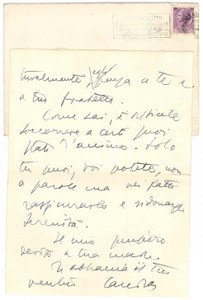 a te e
a tuo fratello.
Come sai, è difficile
soccorrere a certi suoi
stati d'animo. Solo
tu puoi, voi potete, non
a parole ma nei fatti
rassicurarlo e ridonargli
serenità.
Il mio pensiero
devoto a tua madre.
Ti abbraccia il tuo